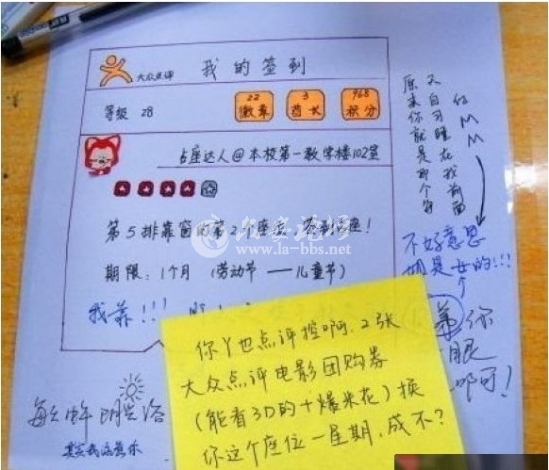 大众点评 我的签到
等级 28
22
徽章
3
酋长
968
积分
占座达人@本校第一教学楼102室
第5排靠窗的第2个座位
期限:1个月 (劳动节——儿童节)
我靠!!!
你丫也点评控啊,2张
大众点评电影团购券
(能看3D的+爆米花)换
你这个座位一星期,成不?
原来你就是那个穿
天天自习睡在我前面
的MM
不好意思
是女的!!!
你
眼
啊!
www.la-bbs.net